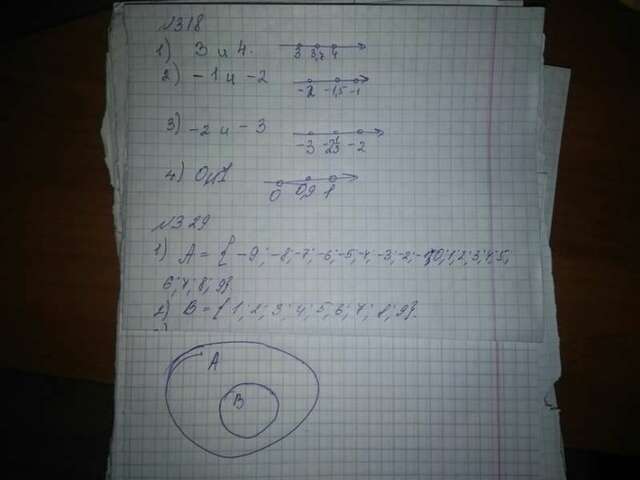 №318
1) 3 и 4.
3 3,7 4
2) -1 и -2
-2 -1,5 -1
3) -2 и -3
-3 -2⅓ -2
4) 0 и 1
0 0,9 1
№329
1) A = { -9; -8; -7; -6; -5; -4; -3; -2; -1; 0; 1; 2; 3; 4; 5;
6; 7; 8; 9}
2) B = { 1; 2; 3; 4; 5; 6; 7; 8; 9}.
A
B